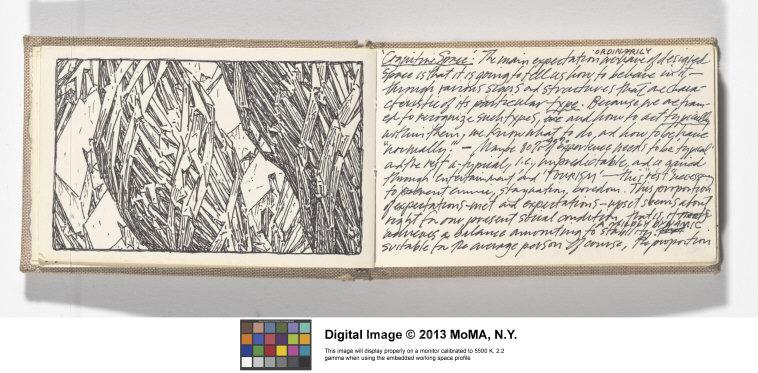 ORDINARILY
"Cognitive Space": The main expectation we have of designed
space is that it is going to tell us how to behave in it—
through various signs and structures that are charac-
cteristic of its particular type. Because we are train-
ed to recognize such types, and how to act typically
within them, we know what to do, and how to behave
"normally." — Maybe 80% of experience needs to be typical
and the rest a-typical, i.e., unpredictable, and is gained
through entertainment and 'tourism'— this rest necessary
to prevent ennui, stagnation, boredom. This proportion
of expectations-met and expectations-upset seems about
right for our present social condition, that is, it
achieves a balance amounting to stability.
A MILDLY DYNAMIC
suitable for the average person. Of course, the proportion
Digital Image © 2013 MoMA, N.Y.
This image will display properly on a monitor calibrated to 5500 K, 2.2
gamma when using the embedded working space profile